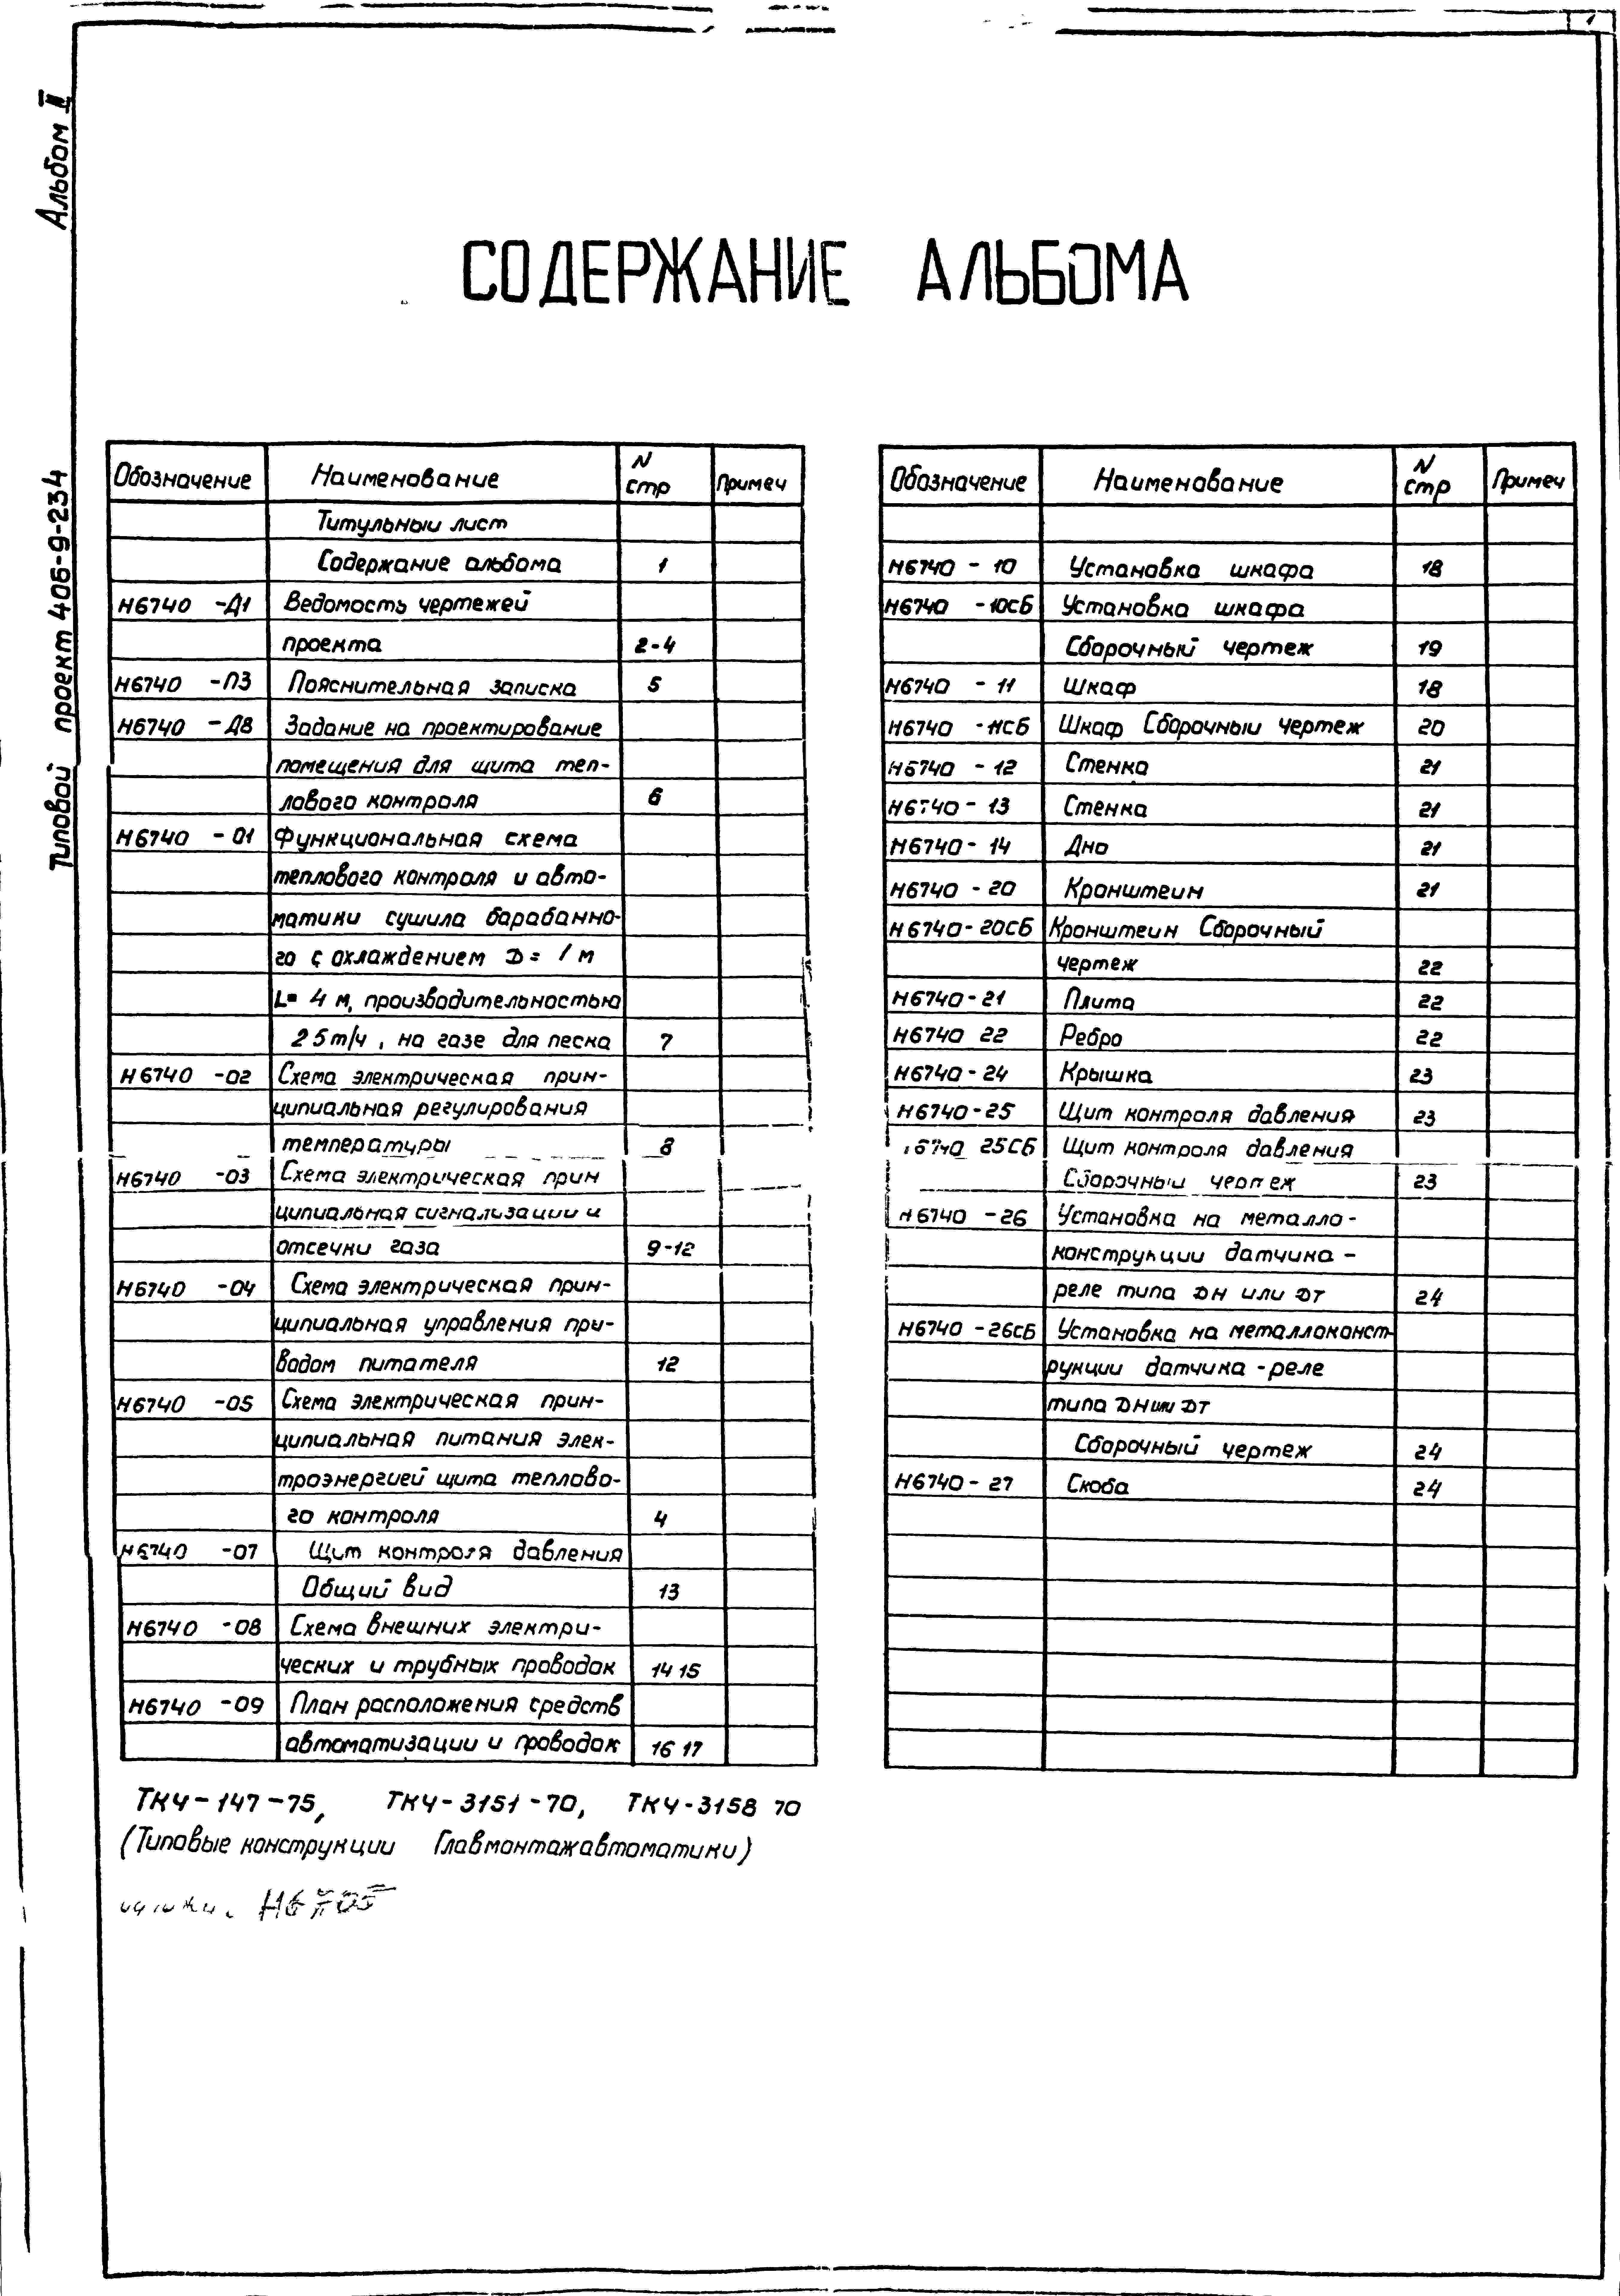 1
Альбом II
Типовой проект 406-9-234
СОДЕРЖАНИЕ АЛЬБОМА
Обозначение Наименование N стр Примеч
Титульныи лист
Содержание альбома 1
Н6740 -Д1 Ведомость чертежей
проекта 2-4
Н6740 -ПЗ Пояснительная записка 5
Н6740 -Д8 Задание на проектирование
помещения для щита теп-
лового контроля 6
Н6740 -01 Функциональная схема
теплового контроля и авто-
матики сушила барабанно-
го с охлаждением D= 1 м
L= 4 м, производительностью
25т/ч, на газе для песка 7
Н6740 -02 Схема электрическая прин-
ципиальная регулирования
температуры 8
Н6740 -03 Схема электрическая прин
ципиальная сигнализации и
отсечки газа 9-12
Н6740 -04 Схема электрическая прин-
ципиальная управления при-
водом питателя 12
Н6740 -05 Схема электрическая прин-
ципиальная питания элек-
троэнергией щита теплово-
го контроля 4
Н6740 -07 Щит контроля давления
Общий вид 13
Н6740 -08 Схема внешних электри-
ческих и трубных проводок 14 15
Н6740 -09 План расположения средств
автоматизации и проводок 16 17
ТКЧ-147-75, ТКЧ-3151-70, ТКЧ-3158 70
(Типовые конструкции Главмонтажавтоматики)
Обозначение Наименование N стр Примеч
Н6740 - 10 Установка шкафа 18
Н6740 -10СБ Установка шкафа
Сборочный чертеж 19
Н6740 - 11 Шкаф 18
Н6740 -11СБ Шкаф Сборочныи чертеж 20
Н6740 - 12 Стенка 21
Н6740 - 13 Стенка 21
Н6740- 14 Дно 21
Н6740 - 20 Кронштеин 21
Н6740-20СБ Кронштеин Сборочный
чертеж 22
Н6740-21 Плита 22
Н6740 22 Ребро 22
Н6740-24 Крышка 23
Н6740-25 Щит контроля давления 23
Н6740 25СБ Щит контроля давления
Сборочныи чертеж 23
Н6740 -26 Установка на металло-
конструкции датчика-
реле типа ДН или ДТ 24
Н6740 -26СБ Установка на металлоконст-
рукции датчика-реле
типа ДН или ДТ
Сборочный чертеж 24
Н6740-27 Скоба 24